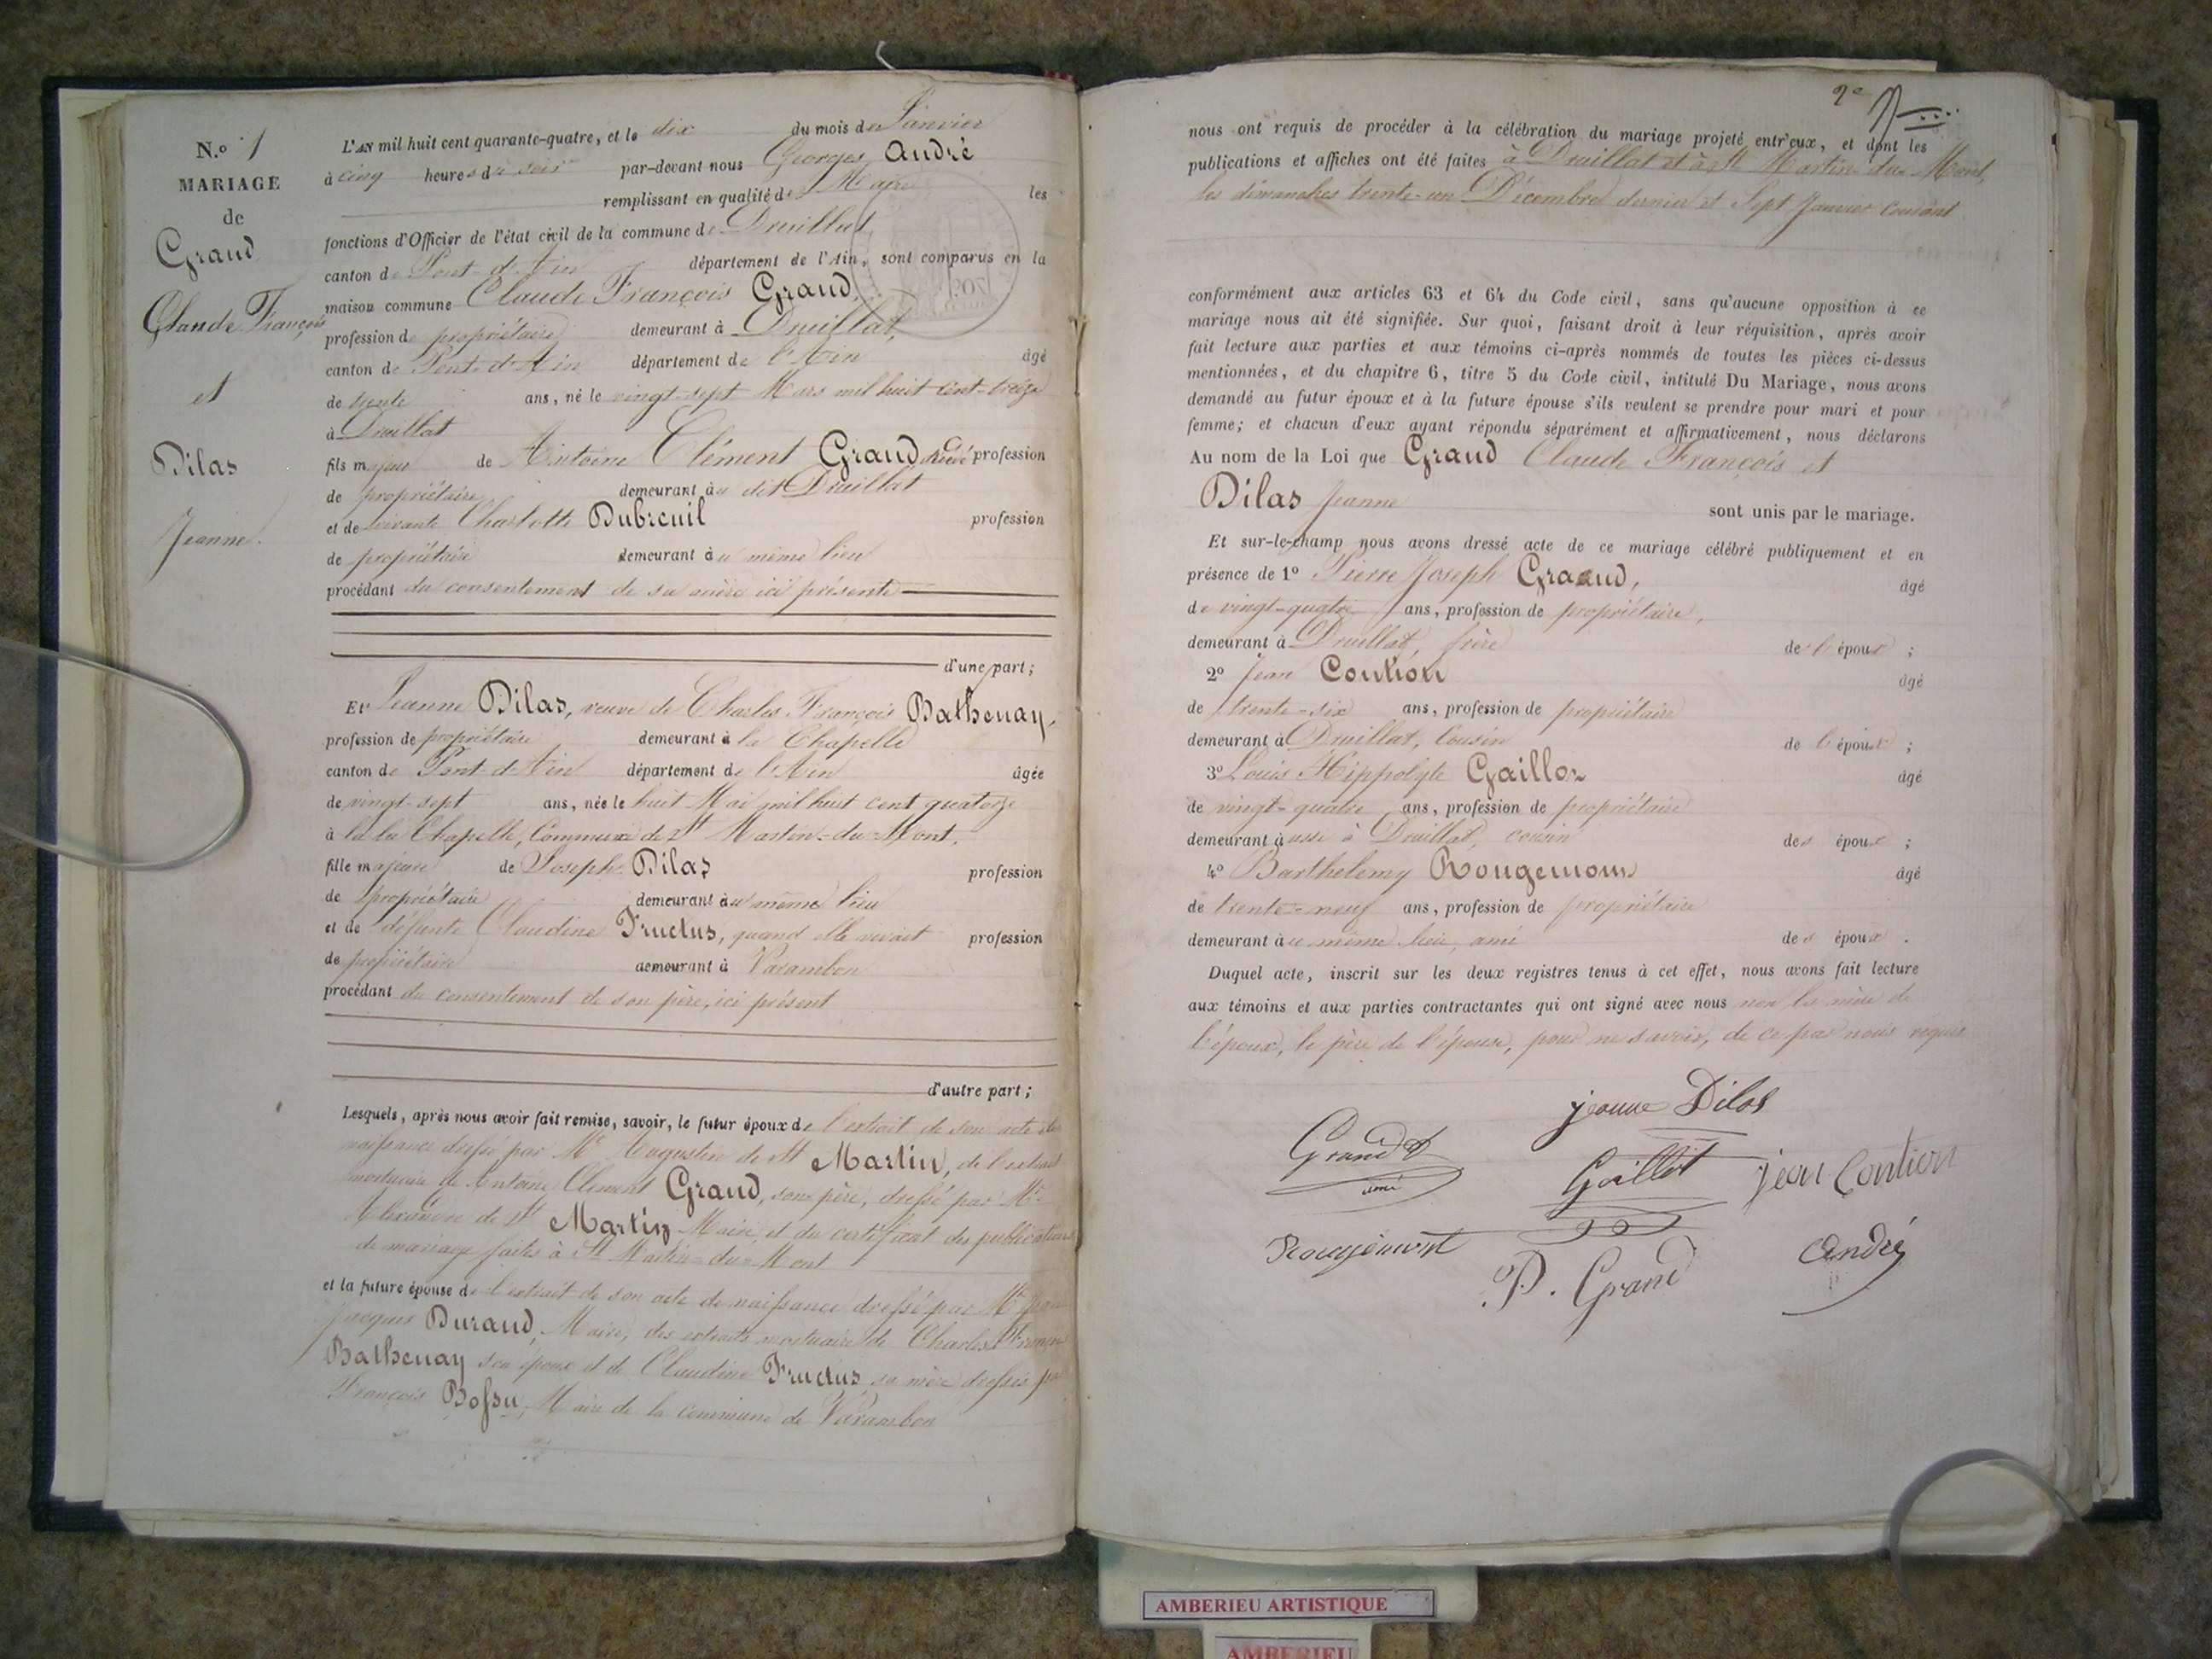 N.o 1
MARIAGE
de
Grand
Claude François
et
Dilas
Jeanne.
L'AN mil huit cent quarante-quatre, et le dix du mois de Janvier
à cinq heures du soir par-devant nous Georges André
remplissant en qualité de Maire les
fonctions d'Officier de l'état civil de la commune de Druillat,
canton de Pont-d'Ain département de l'Ain, sont comparus en la
maison commune Claude François Grand,
profession de propriétaire demeurant à Druillat,
canton de Pont-d'Ain département de l'Ain âgé
de trente ans, né le vingt-sept Mars mil huit cent-treize
à Druillat
fils majeur de Antoine Clément Grand profession
de propriétaire demeurant au dit Druillat
et de vivante Charlotte Dubreuil profession
de propriétaire demeurant au même lieu
procédant du consentement de sa mère ici présente
d'une part;
ET Jeanne Dilas, veuve de Charles François Bathenay,
profession de propriétaire demeurant à la Chapelle
canton de Pont-d'Ain département de l'Ain âgée
de vingt-sept ans, née le huit Mai mil huit cent quatorze
à la la Chapelle, Commune de St Martin-du-Mont,
fille majeure de Joseph Dilas profession
de propriétaire demeurant au même lieu
et de défunte Claudine Fructus, quand elle vivait profession
de propriétaire demeurant à Varambon
procédant du consentement de son père, ici présent
d'autre part;
Lesquels, après nous avoir fait remise, savoir, le futur époux de l'extrait de son acte de
naissance dressé par Mr Augustin de St Martin, de l'extrait
mortuaire de Antoine Clément Grand, son père, dressé par Mr
Alexandre de St Martin Maire, et du certificat des publications
de mariage faites à St Martin-du-Mont
et la future épouse de l'extrait de son acte de naissance dressé par Mr Jean
Jacques Durand, Maire, des extraits mortuaire de Charles François
Bathenay son époux et de Claudine Fructus sa mère dressés par
François Bossu, Maire de la commune de Varambon
2e
nous ont requis de procéder à la célébration du mariage projeté entr'eux, et dont les
publications et affiches ont été faites à Druillat et à St Martin-du-Mont,
les dimanches trente-un Décembre dernier et Sept Janvier courant
conformément aux articles 63 et 64 du Code civil, sans qu'aucune opposition à ce
mariage nous ait été signifiée. Sur quoi, faisant droit à leur réquisition, après avoir
fait lecture aux parties et aux témoins ci-après nommés de toutes les pièces ci-dessus
mentionnées, et du chapitre 6, titre 5 du Code civil, intitulé Du Mariage, nous avons
demandé au futur époux et à la future épouse s'ils veulent se prendre pour mari et pour
femme; et chacun d'eux ayant répondu séparément et affirmativement, nous déclarons
Au nom de la Loi que Grand Claude François et
Dilas Jeanne sont unis par le mariage.
Et sur-le-champ nous avons dressé acte de ce mariage célébré publiquement et en
présence de 1o Pierre Joseph Graand, âgé
de vingt-quatre ans, profession de propriétaire,
demeurant à Druillat, frère de l'époux ;
2o Jean Contion âgé
de trente-six ans, profession de propriétaire
demeurant à Druillat, Cousin de l'époux ;
3o Louis Hippolyte Gaillot âgé
de vingt-quatre ans, profession de propriétaire
demeurant aussi à Druillat, cousin des époux ;
4o Barthelemy Rougemont âgé
de trente-neuf ans, profession de propriétaire
demeurant au même lieu, ami des époux .
Duquel acte, inscrit sur les deux registres tenus à cet effet, nous avons fait lecture
aux témoins et aux parties contractantes qui ont signé avec nous non la mère de
l'époux, le père de l'épouse, pour ne savoir, de ce par nous requis
jeanne Dilas
Grand
Gaillot
jean Contion
Rougemont
P. Grand
André
AMBERIEU ARTISTIQUE
AMBERIEU